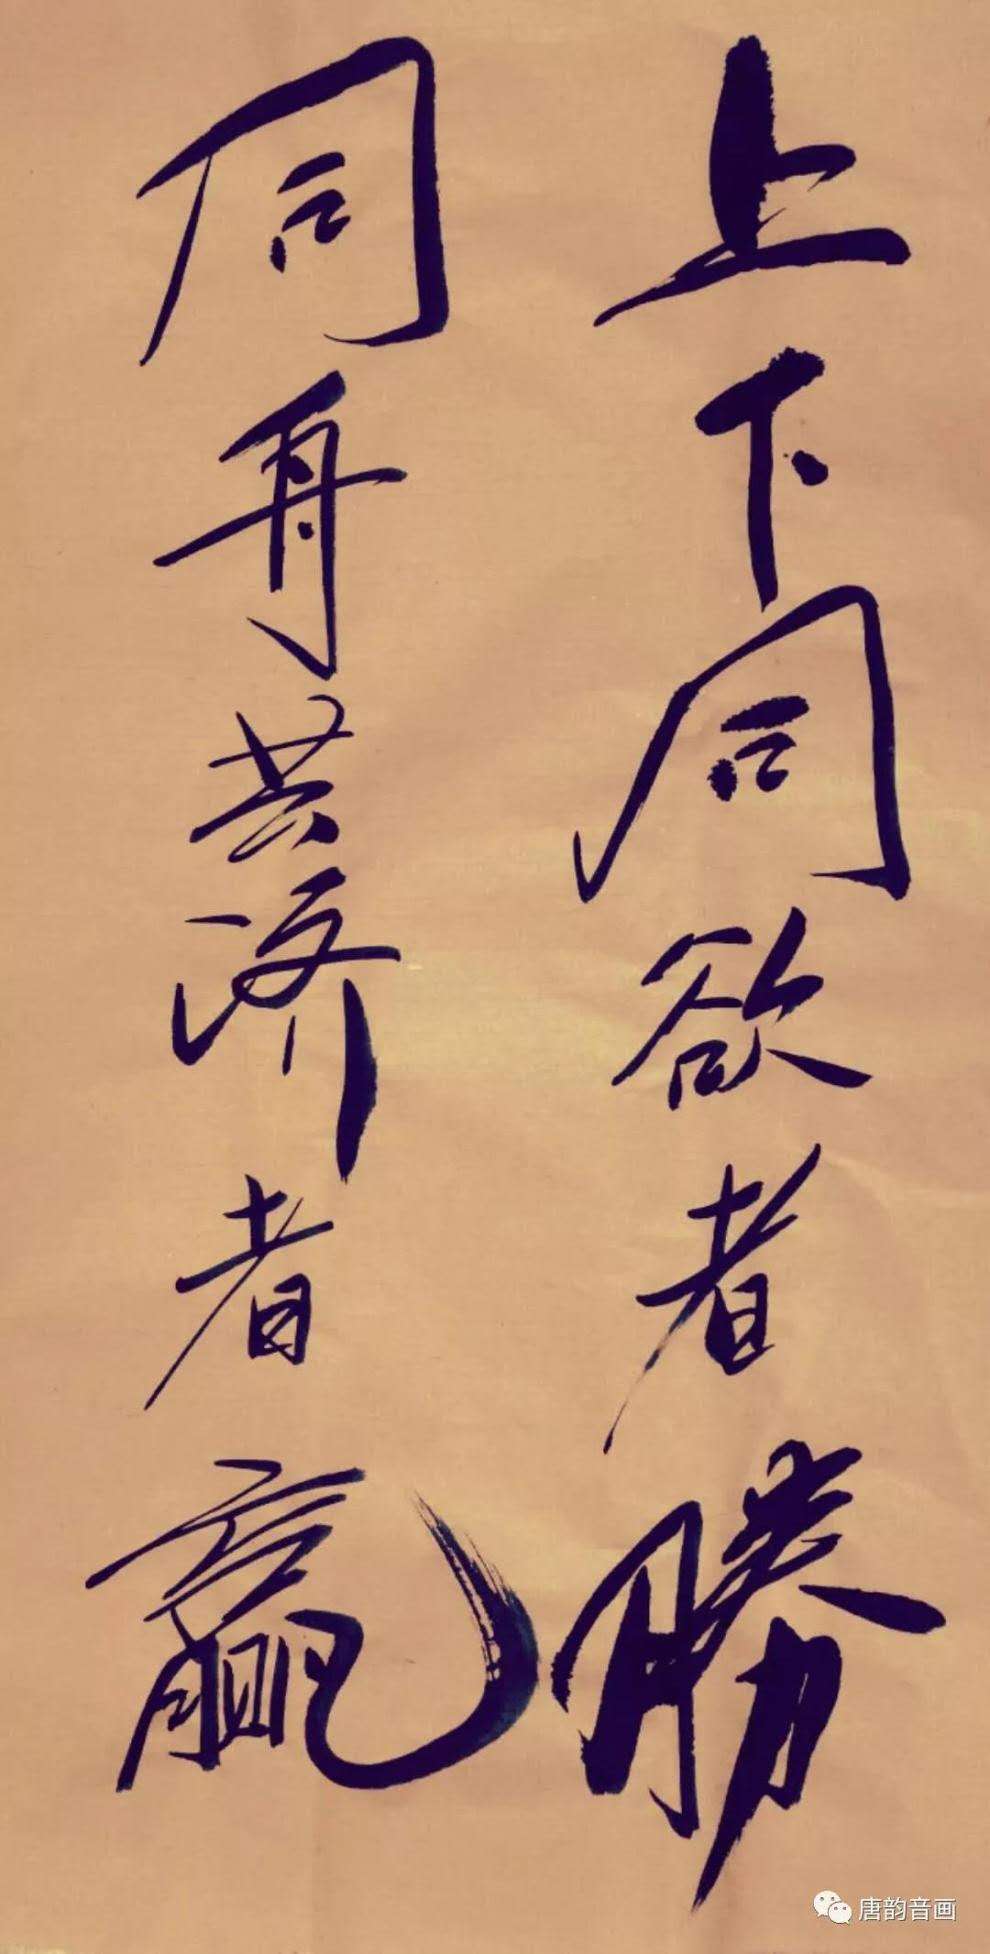 上下同欲者勝
同舟共济者赢
唐韵音画